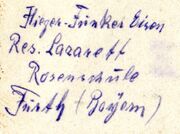 Flieger-Funker Eisen
Res. Lazarett
Rosenschule
Fürth (Bayern)